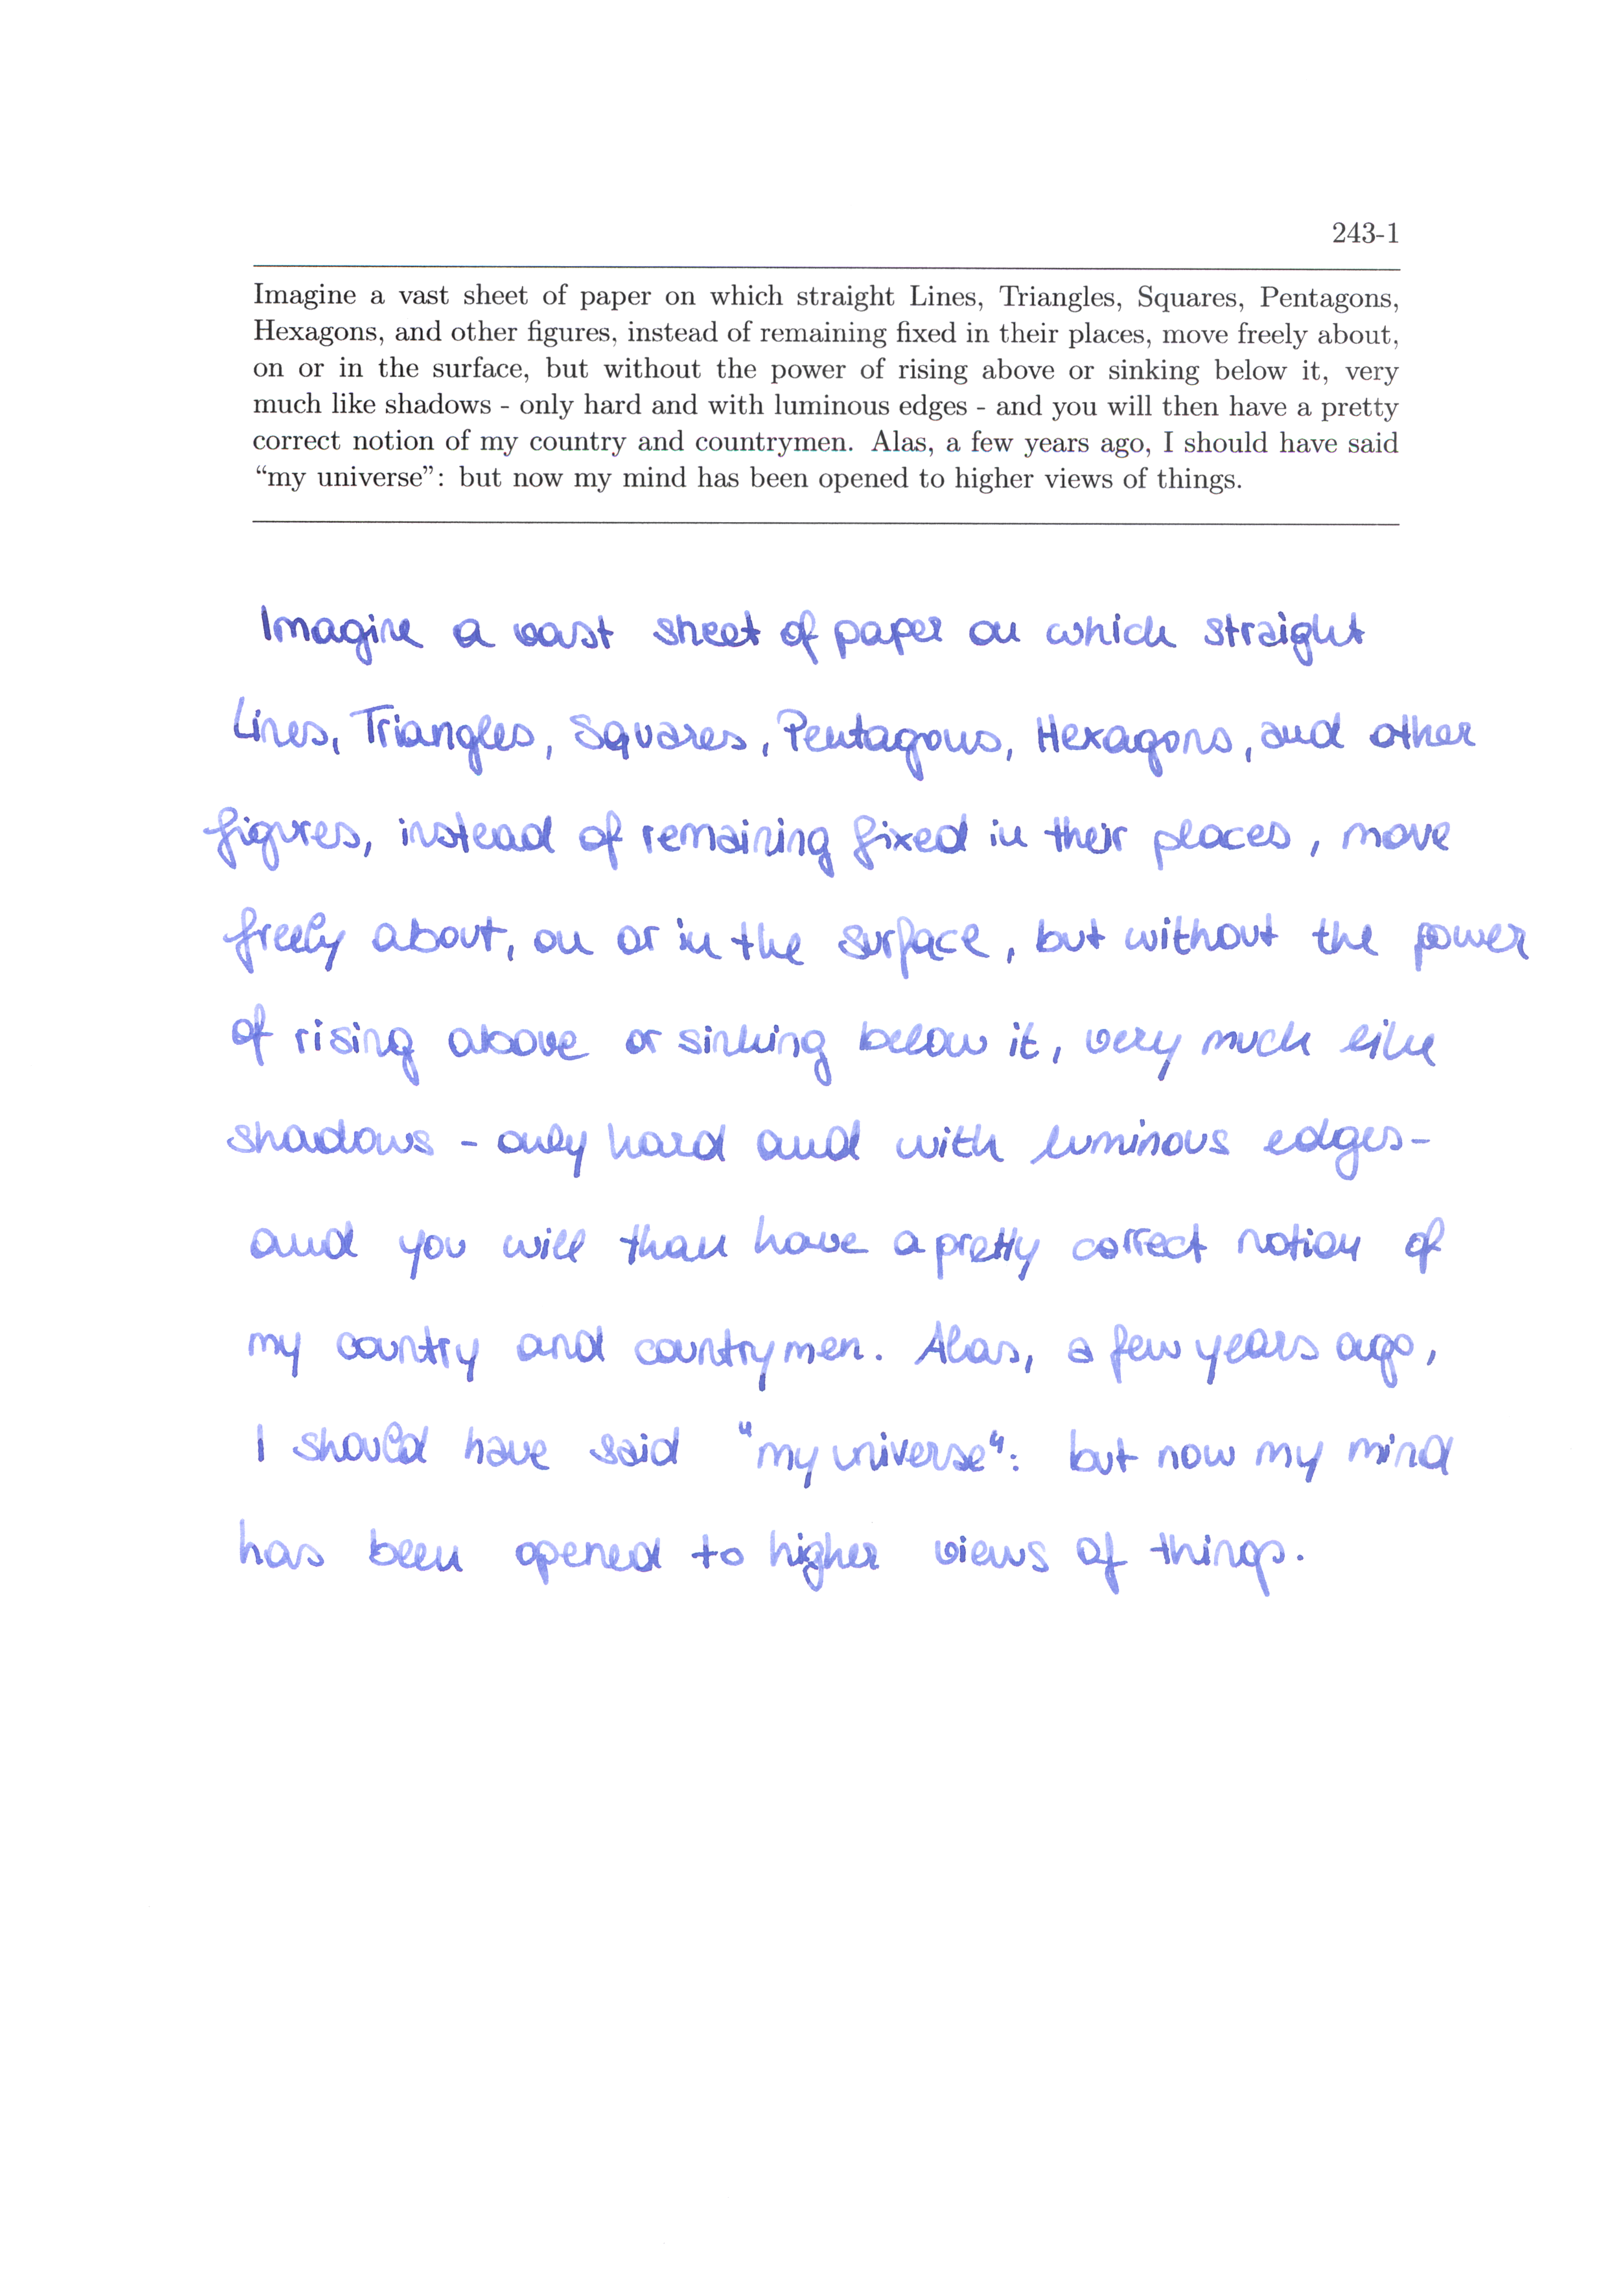 243-1
Imagine a vast sheet of paper on which straight Lines, Triangles, Squares, Pentagons,
Hexagons, and other figures, instead of remaining fixed in their places, move freely about,
on or in the surface, but without the power of rising above or sinking below it, very
much like shadows - only hard and with luminous edges - and you will then have a pretty
correct notion of my country and countrymen. Alas, a few years ago, I should have said
“my universe”: but now my mind has been opened to higher views of things.
Imagine a vast sheet of paper on which straight
Lines, Triangles, Squares, Pentagons, Hexagons, and other
figures, instead of remaining fixed in their places, move
freely about, on or in the surface, but without the power
of rising above or sinking below it, very much like
shadows - only hard and with luminous edges-
and you will than have a pretty correct notion of
my country and countrymen. Alas, a few years ago,
I should have said "my universe": but now my mind
has been opened to higher views of things.